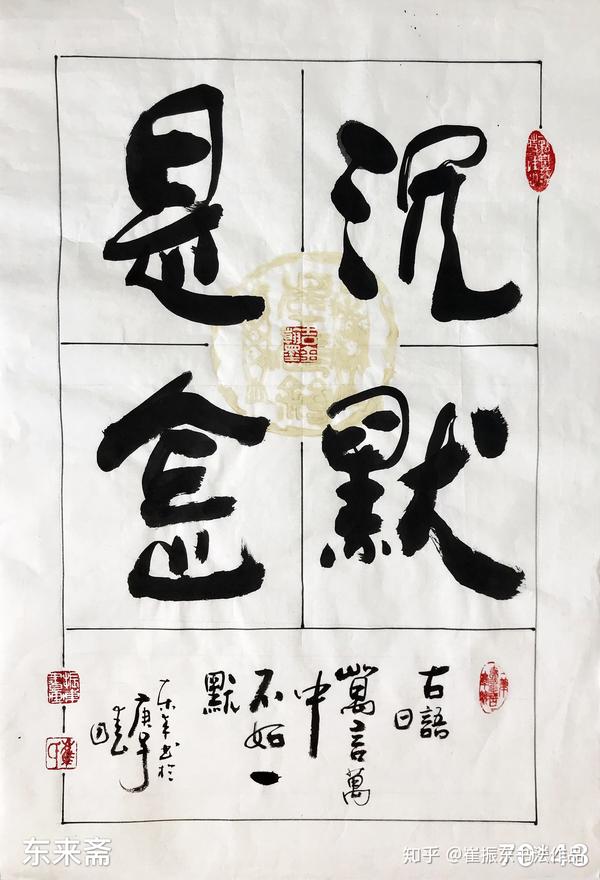 沉默
是金
古語
曰
萬言萬
中
不如一
默
东来斋
知乎 @崔振东书法作品